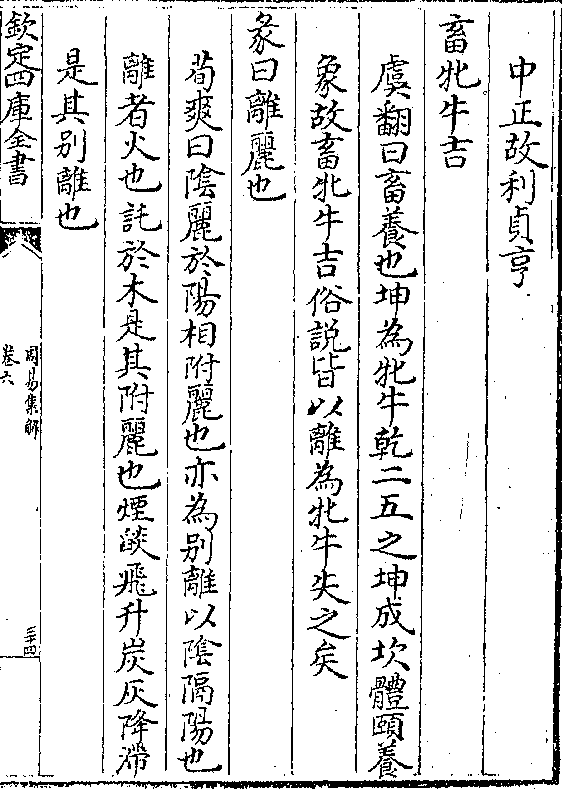 中正故利貞亨
畜牝牛吉
虞翻曰畜養也坤為牝牛乾二五之坤成坎體頤養
象故畜牝牛吉俗説皆以離為牝牛失之矣
彖曰離麗也
荀爽曰陰麗於陽相附麗也亦為别離以陰隔陽也
離者火也託於木是其附麗也煙燄飛升炭灰降滯
是其别離也
欽定四庫全書
周易集解
卷六
三十四